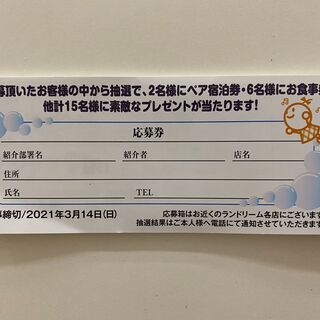 募頂いたお客様の中から抽選で、2名様にペア宿泊券・6名様にお食事券
他計15名様に素敵なプレゼントが当たります!
応募券
紹介部署名 紹介者 店名
住所
氏名 TEL
募締切/2021年3月14日(日)
応募箱はお近くのランドリーム各店にございます
抽選結果はご本人様へ電話にて通知させていただきます